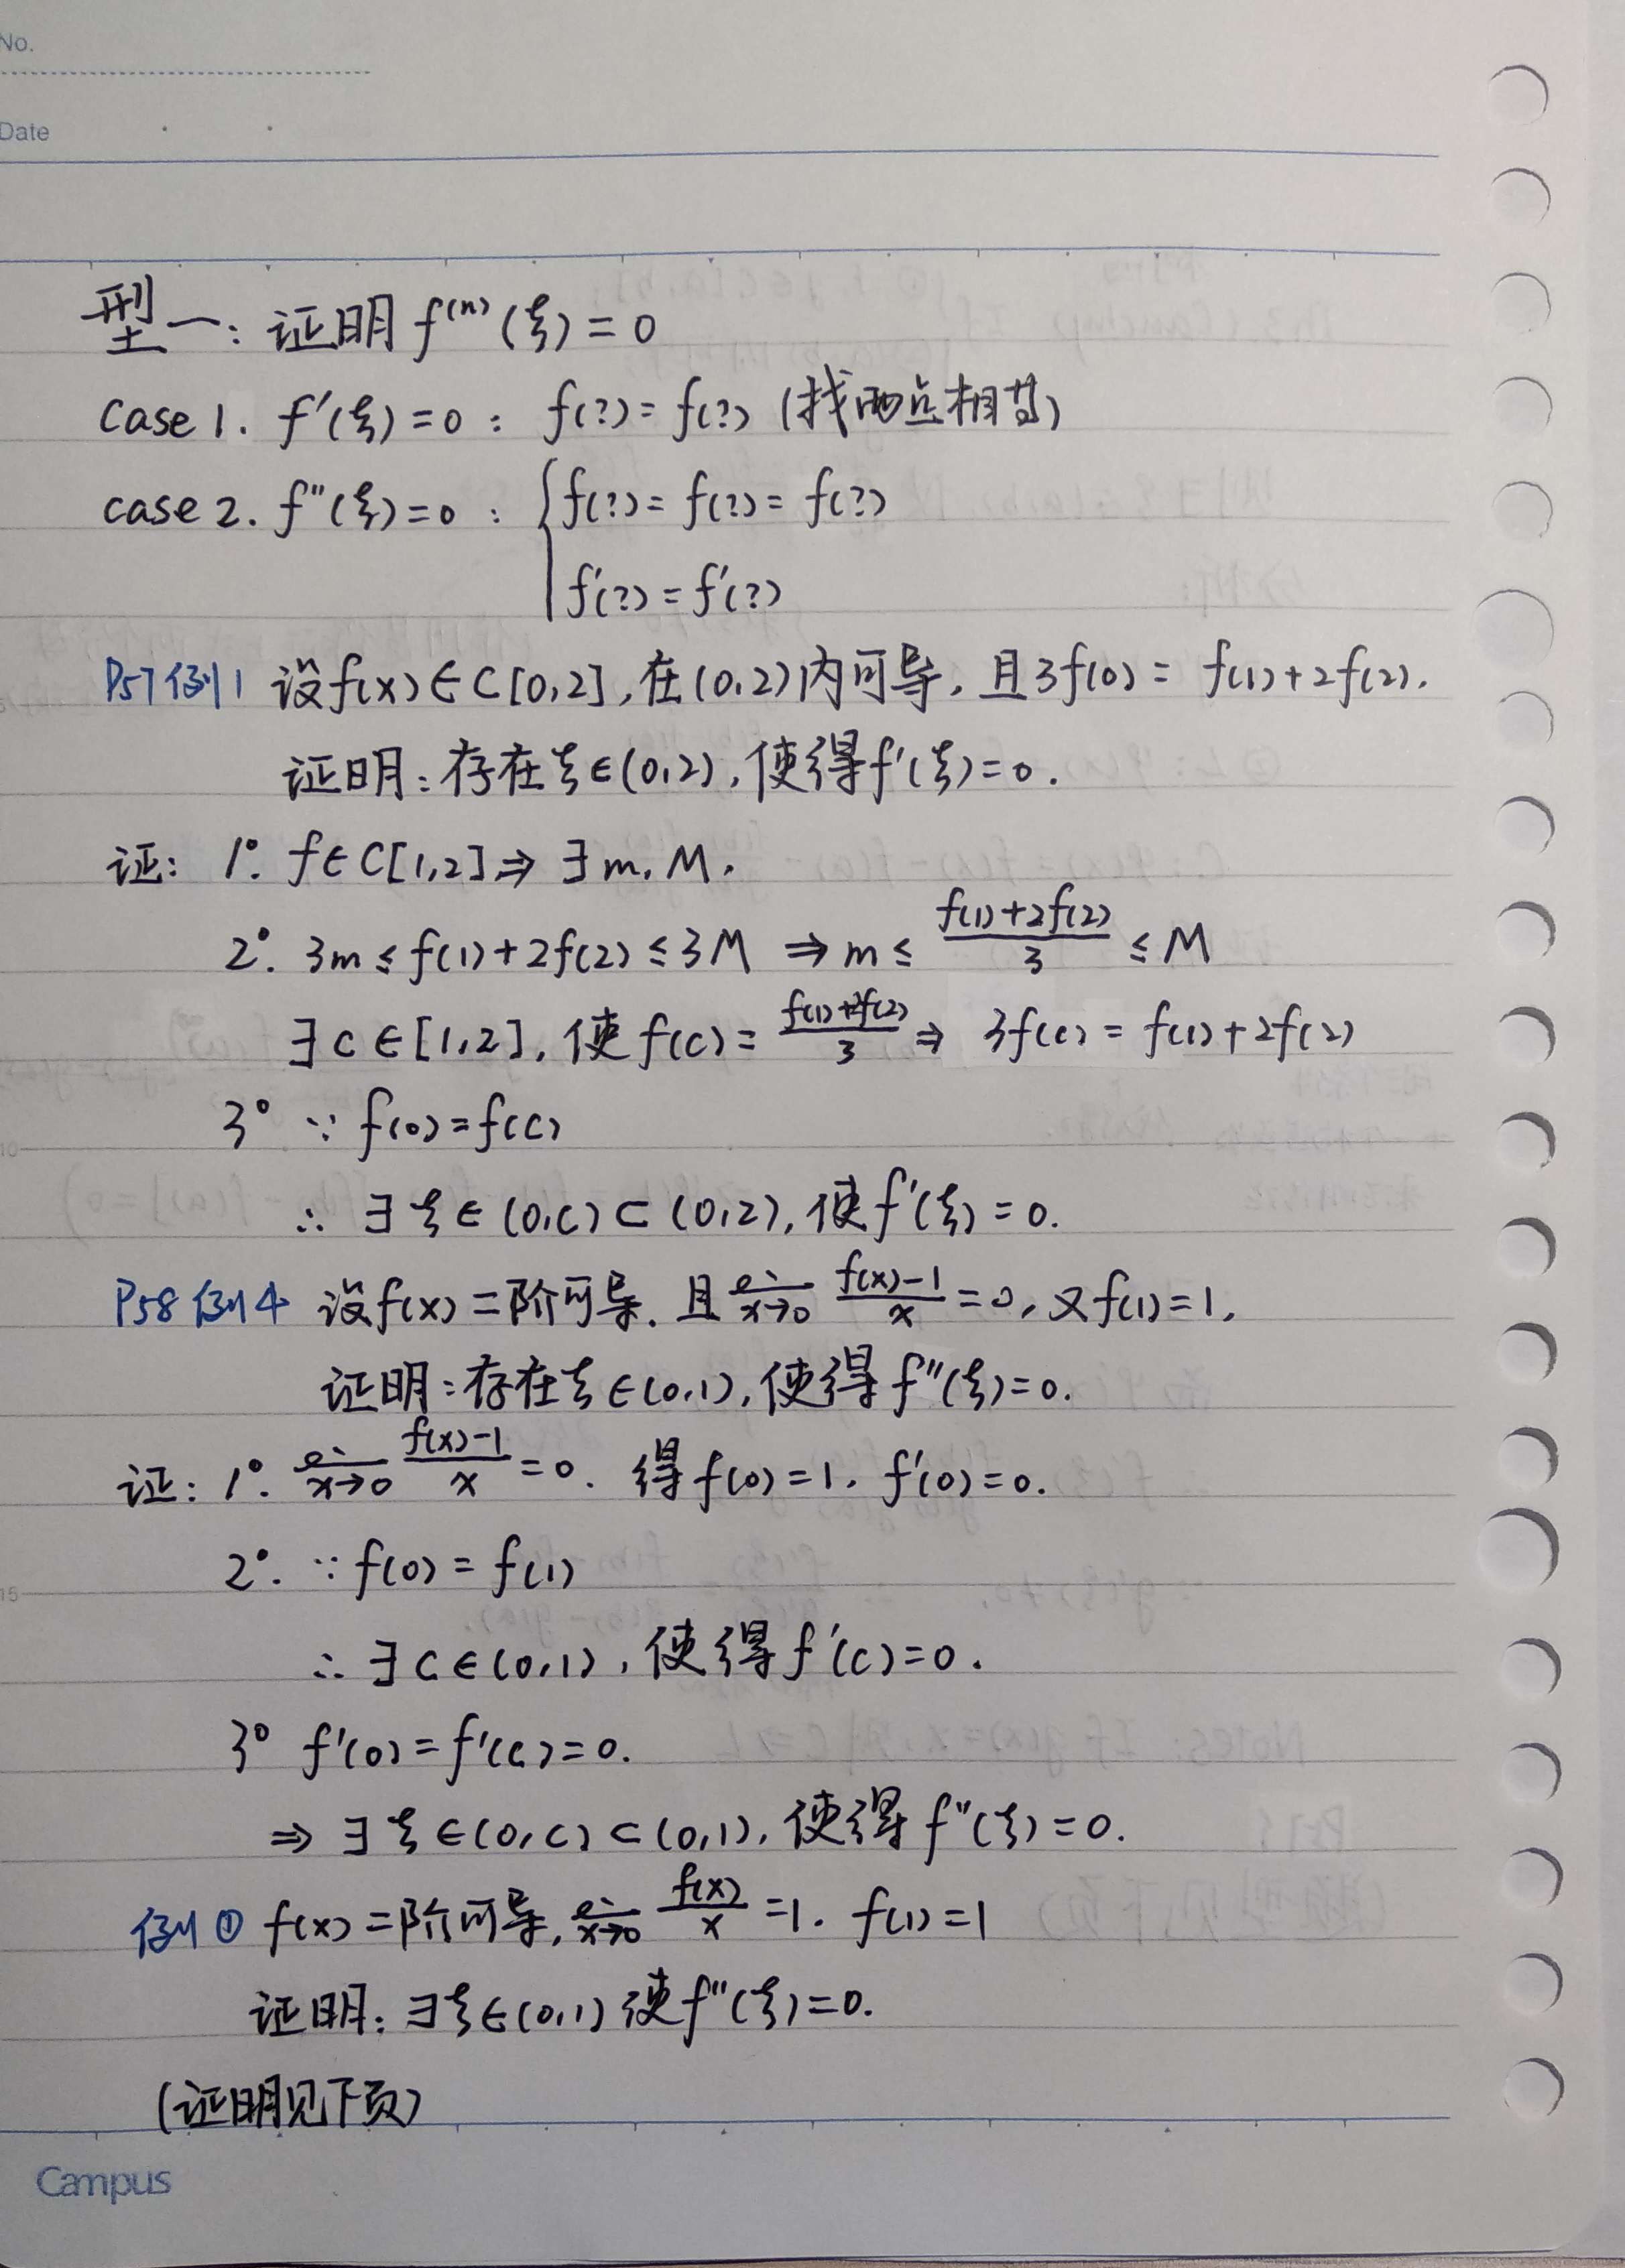 No.
Date
型一: 证明 f⁽ⁿ⁾(ξ) = 0
case 1. f′(ξ) = 0 : f(?) = f(?) (找两点相等)
case 2. f″(ξ) = 0 : { f(?) = f(?) = f(?)
f′(?) = f′(?)
P57例1 设f(x)∈C[0,2], 在(0,2)内可导, 且3f(0) = f(1)+2f(2).
证明: 存在ξ∈(0,2), 使得f′(ξ)=0.
证: 1°. f∈C[1,2] ⇒ ∃ m, M.
2°. 3m ≤ f(1)+2f(2) ≤ 3M ⇒ m ≤ (f(1)+2f(2))/3 ≤ M
∃ c ∈ [1,2], 使 f(c) = (f(1)+2f(2))/3 ⇒ 3f(c) = f(1)+2f(2)
3° ∵ f(0) = f(c)
∴ ∃ ξ ∈ (0,c) ⊂ (0,2), 使f′(ξ) = 0.
P58例4 设f(x)二阶可导, 且 lim x→0 (f(x)-1)/x = 0, 又f(1) = 1,
证明: 存在ξ∈(0,1), 使得f″(ξ)=0.
证: 1°. lim x→0 (f(x)-1)/x = 0. 得f(0) = 1, f′(0)=0.
2°. ∵ f(0) = f(1)
∴ ∃ c∈(0,1), 使得f′(c)=0.
3° f′(0) = f′(c) = 0.
⇒ ∃ ξ∈(0,c)⊂(0,1), 使得f″(ξ)=0.
例① f(x)二阶可导, lim x→0 f(x)/x = 1. f(1)=1
证明: ∃ξ∈(0,1) 使f″(ξ)=0.
(证明见下页)
Campus